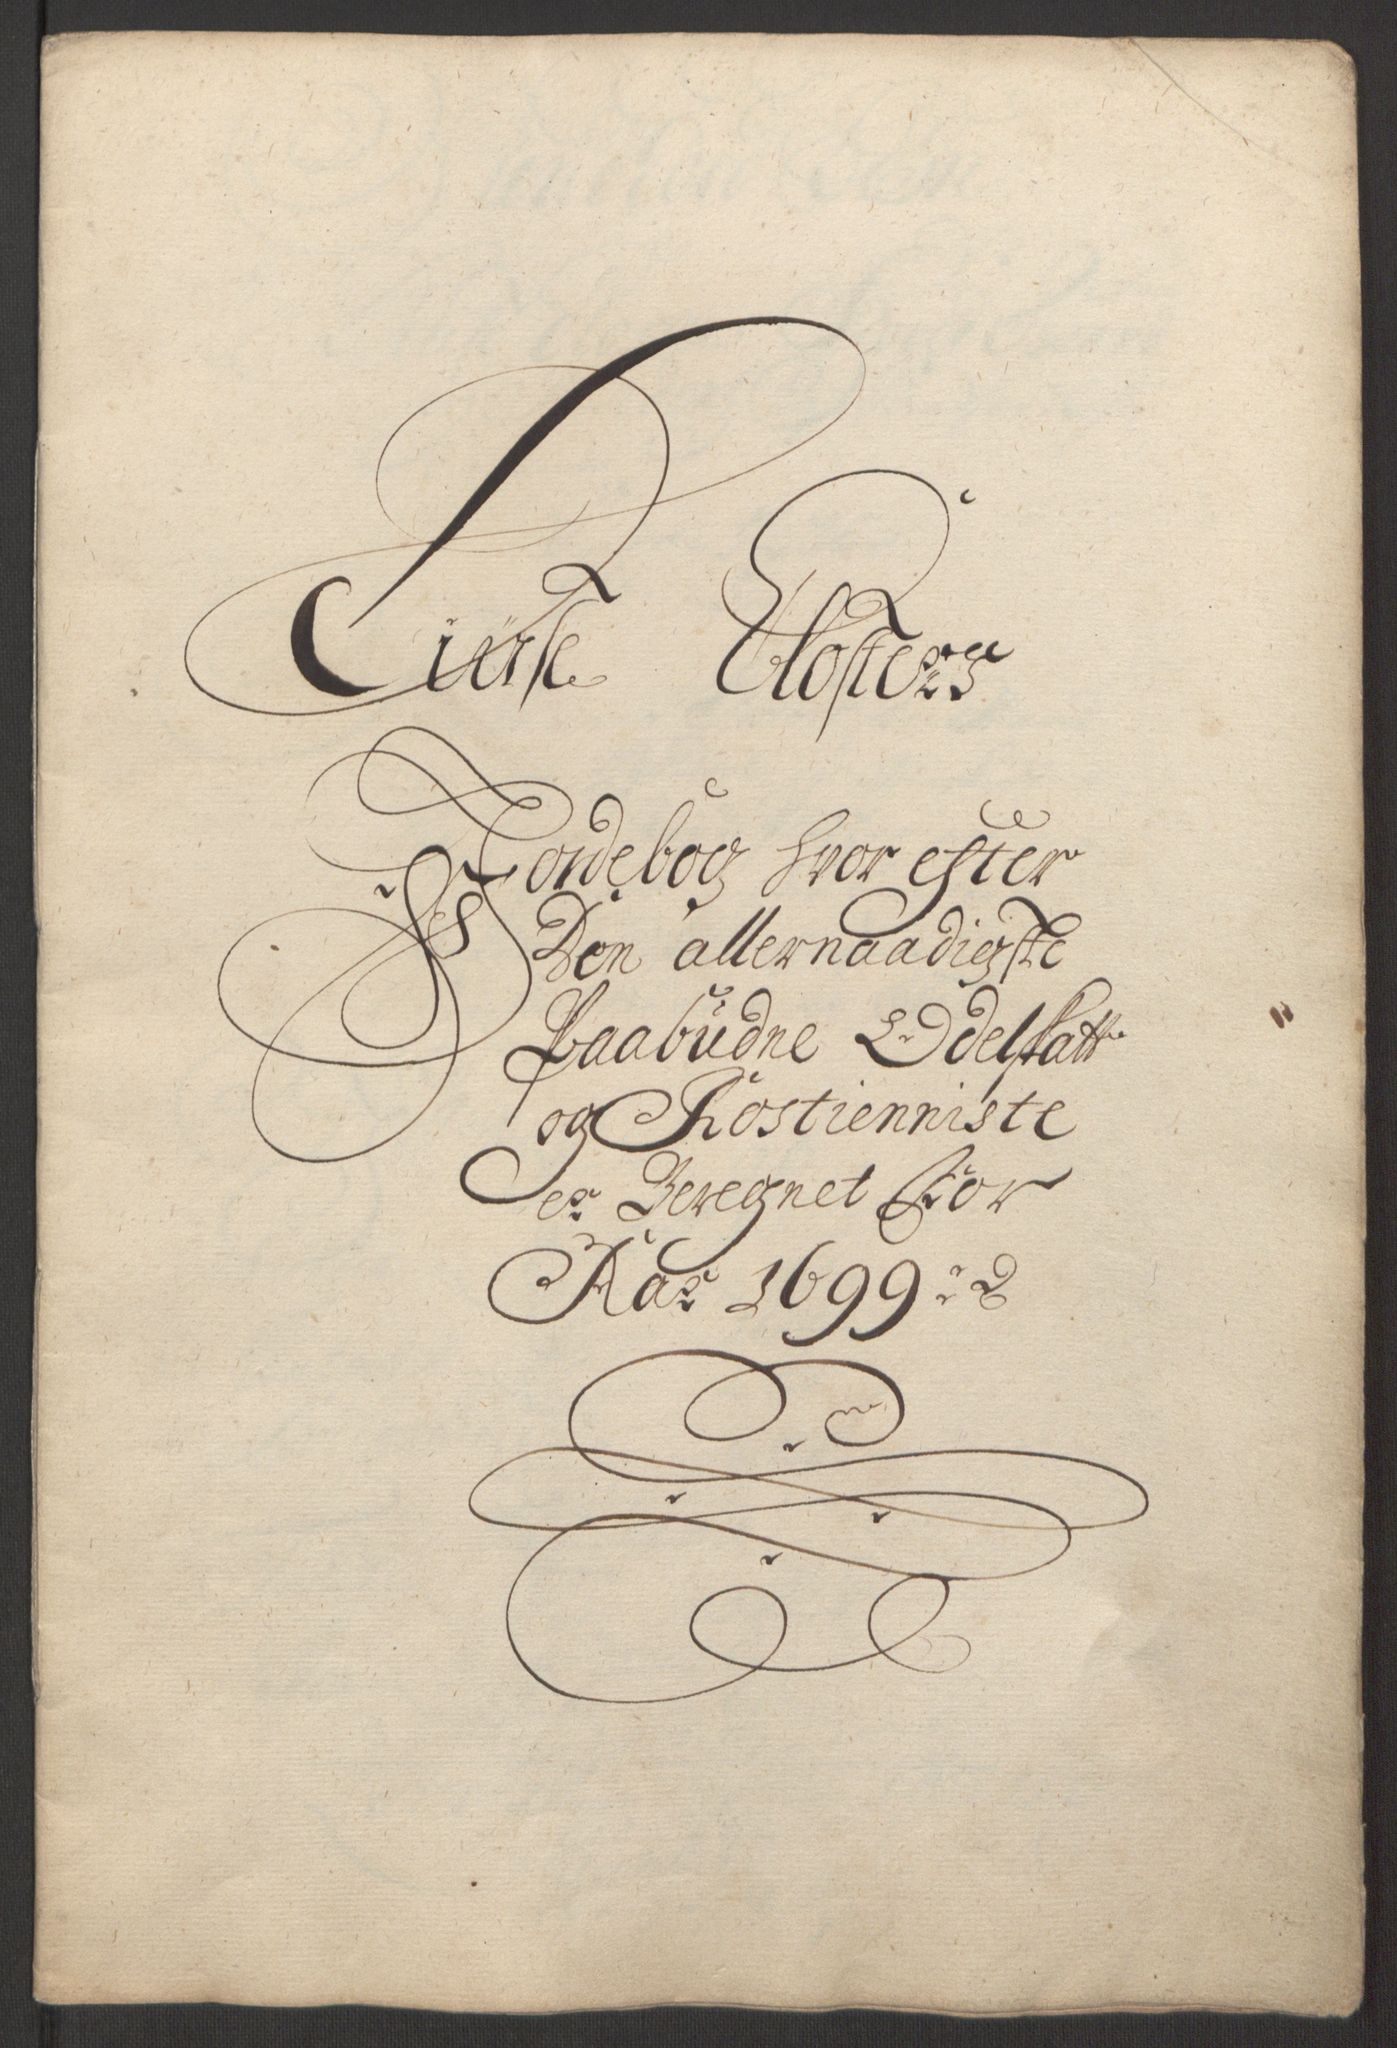 Lüsse Closters
Jordebog hvor efter
Den allernaadigste
Paabüdne Odelskatt
og Rostienniste
er Beregnet for
Aar 1699: